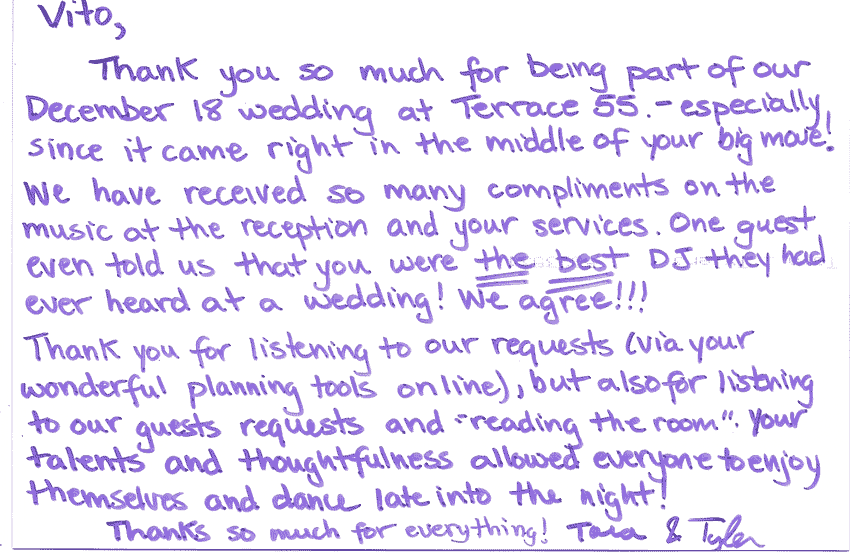 Vito,
Thank you so much for being part of our
December 18 wedding at Terrace 55. - especially
since it came right in the middle of your big move!
We have received so many compliments on the
music at the reception and your services. One guest
even told us that you were the best DJ they had
ever heard at a wedding! We agree!!!
Thank you for listening to our requests (via your
wonderful planning tools online), but also for listening
to our guests requests and "reading the room". Your
talents and thoughtfulness allowed everyone to enjoy
themselves and dance late into the night!
Thanks so much for everything! Tara & Tyler